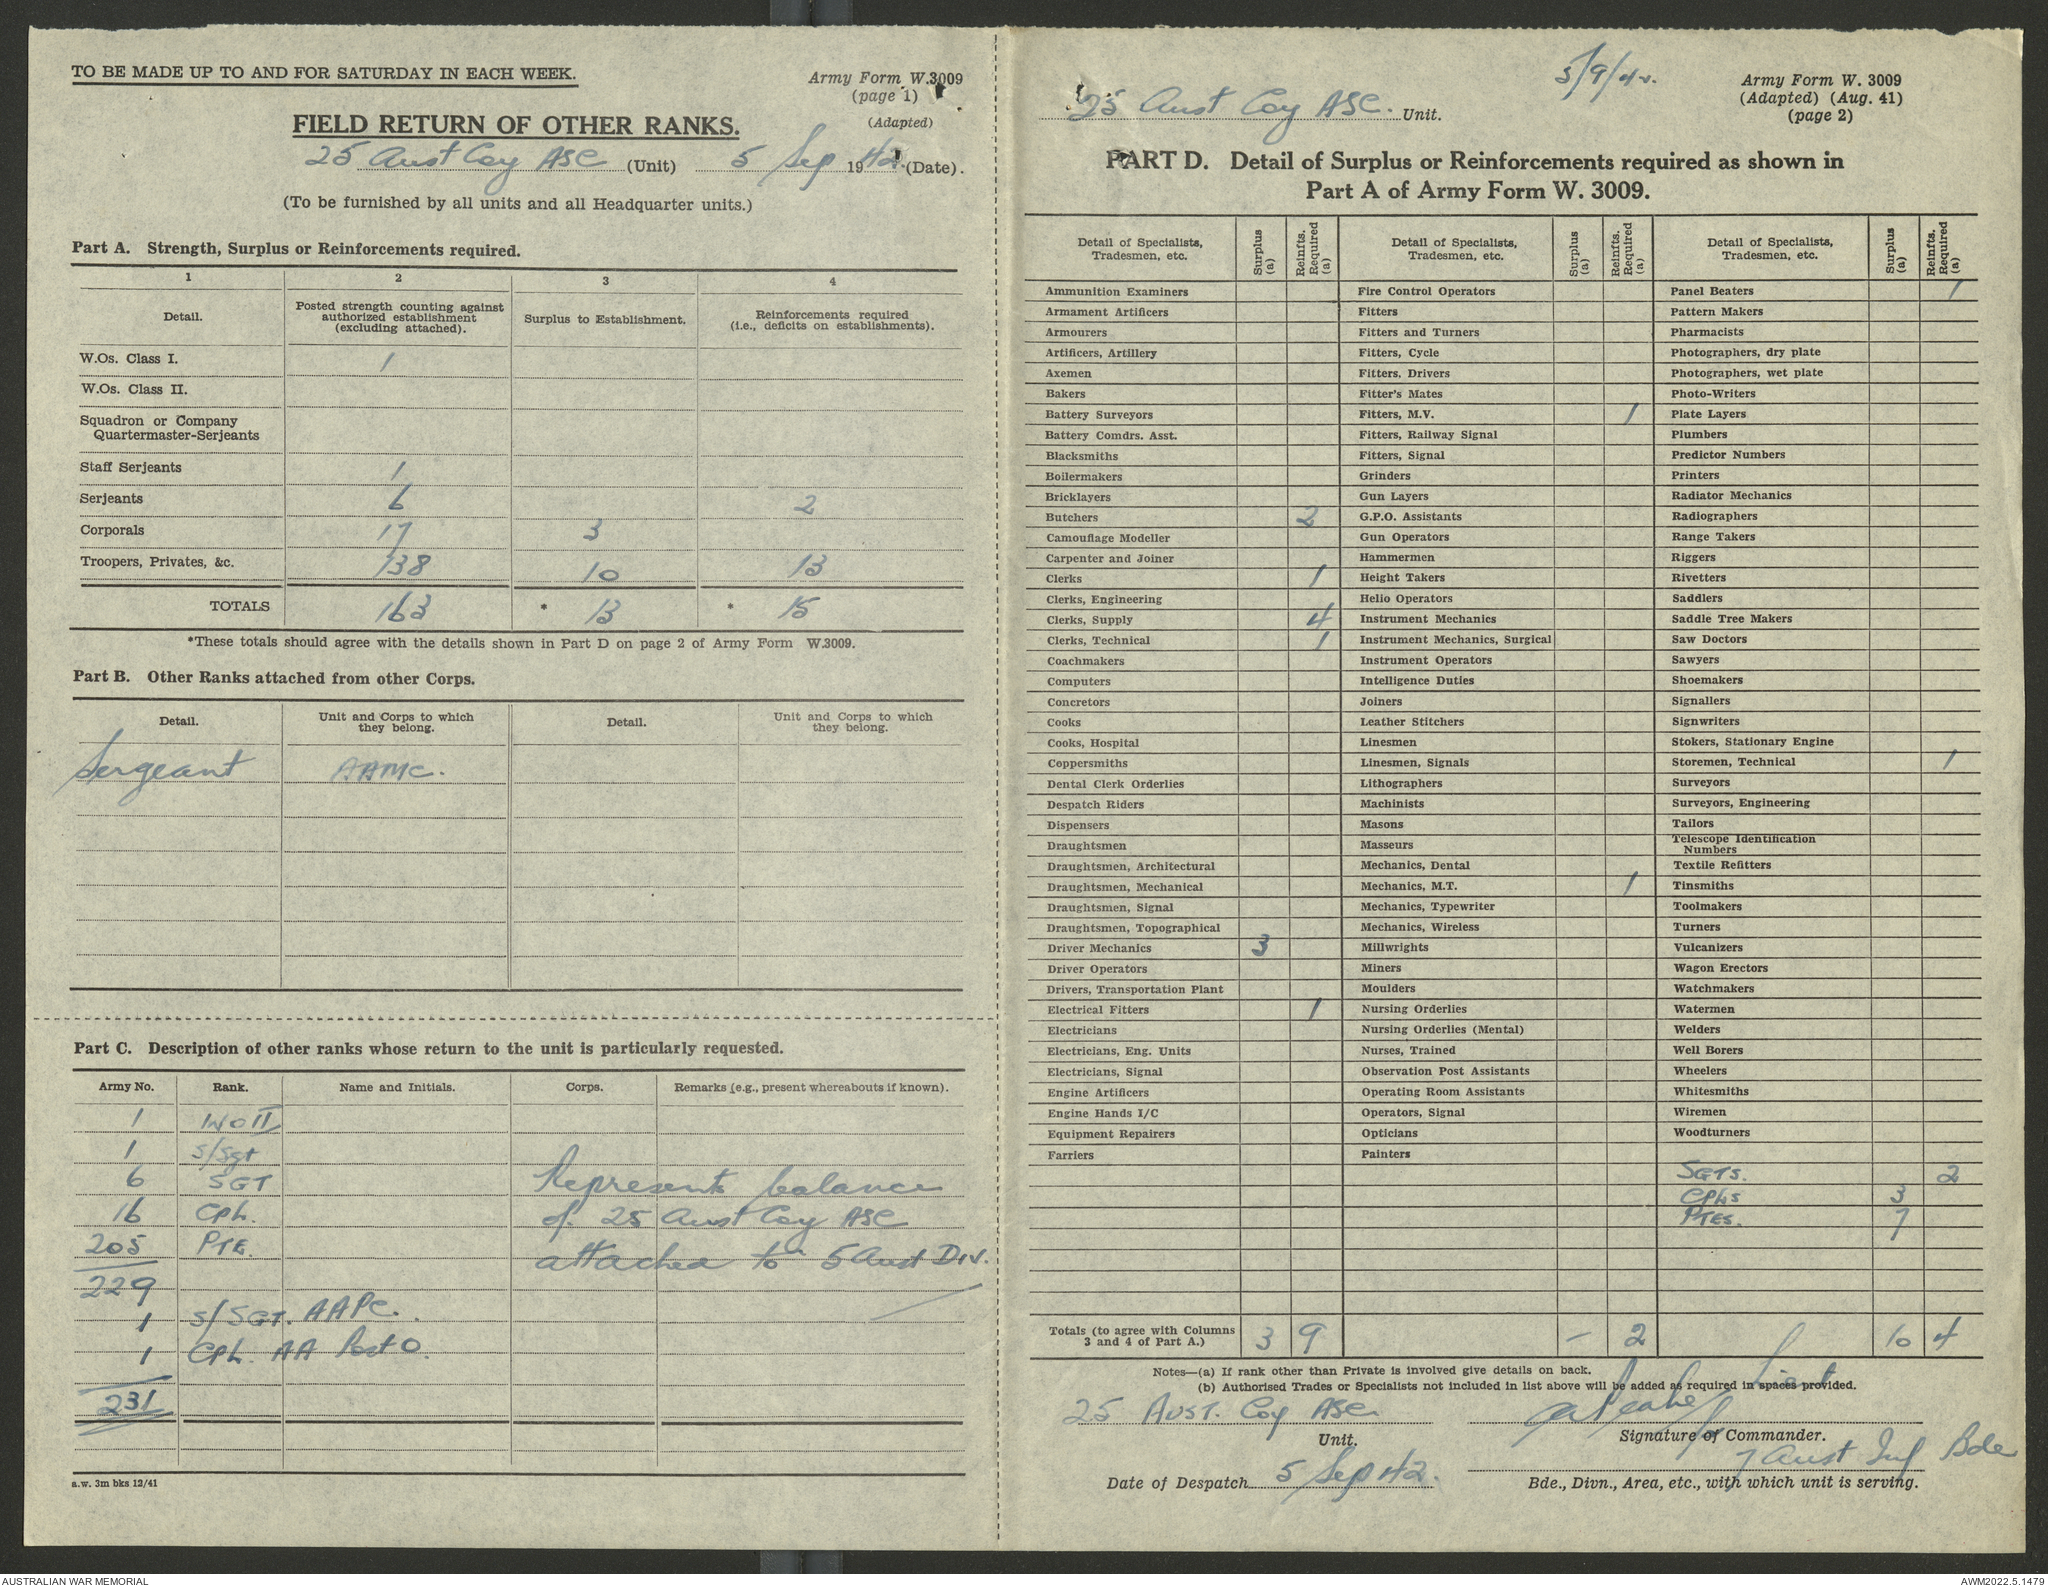 TO BE MADE UP TO AND FOR SATURDAY IN EACH WEEK.
Army Form W.3009
(page 1)
(Adapted)
FIELD RETURN OF OTHER RANKS.
25 Aust Coy ASC (Unit) 5 Sep 1942. (Date).
(To be furnished by all units and all Headquarter units.)
Part A. Strength, Surplus or Reinforcements required.
1 2 3 4
Detail. Posted strength counting against authorized establishment (excluding attached). Surplus to Establishment. Reinforcements required (i.e., deficits on establishments).
W.Os. Class I. 1
W.Os. Class II.
Squadron or Company
Quartermaster-Serjeants
Staff Serjeants 1
Serjeants 6 2
Corporals 17 3
Troopers, Privates, &c. 138 10 13
TOTALS 163 * 13 * 15
*These totals should agree with the details shown in Part D on page 2 of Army Form W.3009.
Part B. Other Ranks attached from other Corps.
Detail. Unit and Corps to which they belong. Detail. Unit and Corps to which they belong.
Sergeant AAMC.
Part C. Description of other ranks whose return to the unit is particularly requested.
Army No. Rank. Name and Initials. Corps. Remarks (e.g., present whereabouts if known).
1 WOII
1 S/Sgt
6 SGT Represents balance
16 CPL. of 25 Aust Coy ASC
205 PTE. attached to 5 Aust Div.
229
1 S/SGT. AAPC.
1 CPL. AA Post O.
231
a.w. 3m bks 12/41
5/9/42.
25 Aust Coy ASC. Unit.
Army Form W. 3009
(Adapted) (Aug. 41)
(page 2)
PART D. Detail of Surplus or Reinforcements required as shown in
Part A of Army Form W. 3009.
Detail of Specialists, Tradesmen, etc. Surplus (a) Reinfts. Required (a) Detail of Specialists, Tradesmen, etc. Surplus (a) Reinfts. Required (a) Detail of Specialists, Tradesmen, etc. Surplus (a) Reinfts. Required (a)
Ammunition Examiners Fire Control Operators Panel Beaters 1
Armament Artificers Fitters Pattern Makers
Armourers Fitters and Turners Pharmacists
Artificers, Artillery Fitters, Cycle Photographers, dry plate
Axemen Fitters, Drivers Photographers, wet plate
Bakers Fitter's Mates Photo-Writers
Battery Surveyors Fitters, M.V. 1 Plate Layers
Battery Comdrs. Asst. Fitters, Railway Signal Plumbers
Blacksmiths Fitters, Signal Predictor Numbers
Boilermakers Grinders Printers
Bricklayers Gun Layers Radiator Mechanics
Butchers 2 G.P.O. Assistants Radiographers
Camouflage Modeller Gun Operators Range Takers
Carpenter and Joiner Hammermen Riggers
Clerks 1 Height Takers Rivetters
Clerks, Engineering Helio Operators Saddlers
Clerks, Supply 4 Instrument Mechanics Saddle Tree Makers
Clerks, Technical 1 Instrument Mechanics, Surgical Saw Doctors
Coachmakers Instrument Operators Sawyers
Computers Intelligence Duties Shoemakers
Concretors Joiners Signallers
Cooks Leather Stitchers Signwriters
Cooks, Hospital Linesmen Stokers, Stationary Engine
Coppersmiths Linesmen, Signals Storemen, Technical 1
Dental Clerk Orderlies Lithographers Surveyors
Despatch Riders Machinists Surveyors, Engineering
Dispensers Masons Tailors
Draughtsmen Masseurs Telescope Identification Numbers
Draughtsmen, Architectural Mechanics, Dental Textile Refitters
Draughtsmen, Mechanical Mechanics, M.T. 1 Tinsmiths
Draughtsmen, Signal Mechanics, Typewriter Toolmakers
Draughtsmen, Topographical Mechanics, Wireless Turners
Driver Mechanics 3 Millwrights Vulcanizers
Driver Operators Miners Wagon Erectors
Drivers, Transportation Plant Moulders Watchmakers
Electrical Fitters 1 Nursing Orderlies Watermen
Electricians Nursing Orderlies (Mental) Welders
Electricians, Eng. Units Nurses, Trained Well Borers
Electricians, Signal Observation Post Assistants Wheelers
Engine Artificers Operating Room Assistants Whitesmiths
Engine Hands I/C Operators, Signal Wiremen
Equipment Repairers Opticians Woodturners
Farriers Painters
SGTS. 2
CPLS 3
PTES. 7
Totals (to agree with Columns 3 and 4 of Part A.) 3 9 - 2 10 4
Notes—(a) If rank other than Private is involved give details on back.
(b) Authorised Trades or Specialists not included in list above will be added as required in spaces provided.
25 AUST. Coy ASC Lieut
Unit. Signature of Commander.
7 Aust Inf Bde
Date of Despatch 5 Sep 42. Bde., Divn., Area, etc., with which unit is serving.
AUSTRALIAN WAR MEMORIAL
AWM2022.5.1479